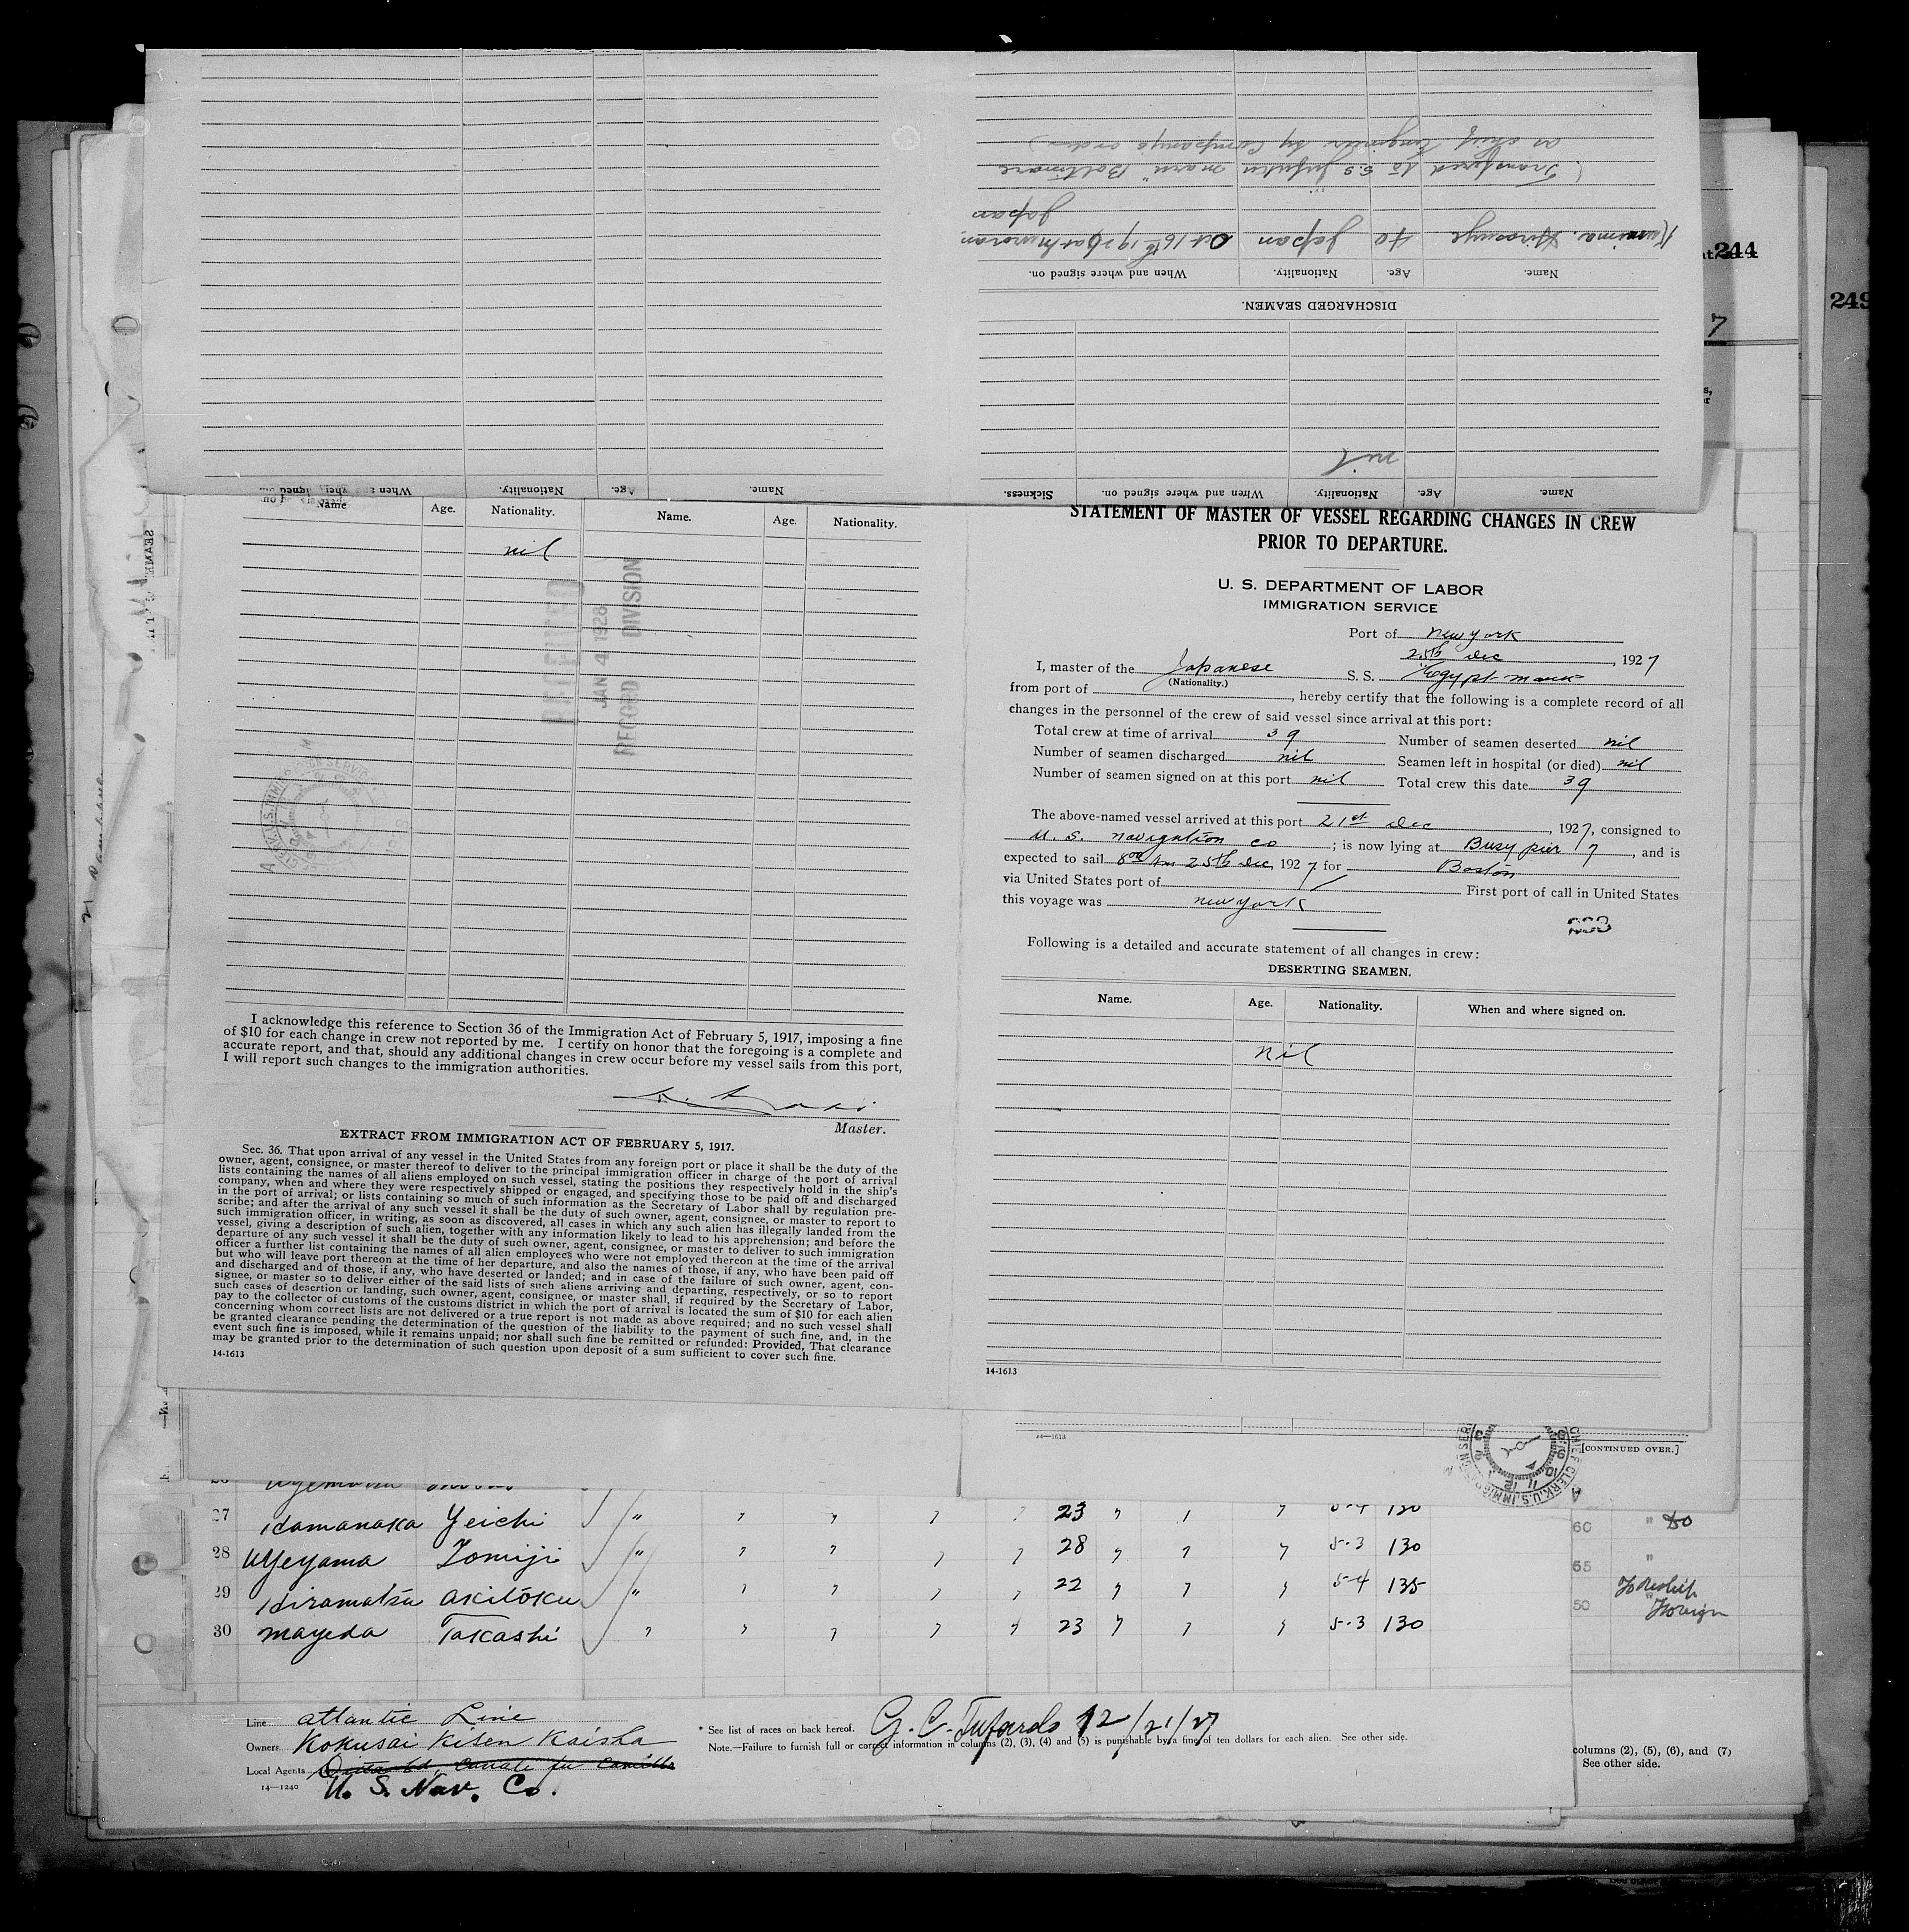 Name. Age. Nationality. When and where signed on.
Name. Age. Nationality. When and where signed on. Sickness.
nil
DISCHARGED SEAMEN.
Name. Age. Nationality. When and where signed on.
Hirosuye 40 Japan Oct 16th 1926 at Muroran,
Japan
(Transfered to S.S. "maru" Baltimore
as chief Engineer by Company's order)
244
249
7
Name Age. Nationality. Name. Age. Nationality.
nil
RECEIVED
JAN 4 1928
RECORD DIVISION
I acknowledge this reference to Section 36 of the Immigration Act of February 5, 1917, imposing a fine
of $10 for each change in crew not reported by me. I certify on honor that the foregoing is a complete and
accurate report, and that, should any additional changes in crew occur before my vessel sails from this port,
I will report such changes to the immigration authorities.
Master.
EXTRACT FROM IMMIGRATION ACT OF FEBRUARY 5, 1917.
Sec. 36. That upon arrival of any vessel in the United States from any foreign port or place it shall be the duty of the
owner, agent, consignee, or master thereof to deliver to the principal immigration officer in charge of the port of arrival
lists containing the names of all aliens employed on such vessel, stating the positions they respectively hold in the ship's
company, when and where they were respectively shipped or engaged, and specifying those to be paid off and discharged
in the port of arrival; or lists containing so much of such information as the Secretary of Labor shall by regulation pre-
scribe; and after the arrival of any such vessel it shall be the duty of such owner, agent, consignee, or master to report to
such immigration officer, in writing, as soon as discovered, all cases in which any such alien has illegally landed from the
vessel, giving a description of such alien, together with any information likely to lead to his apprehension; and before the
departure of any such vessel it shall be the duty of such owner, agent, consignee, or master to deliver to such immigration
officer a further list containing the names of all alien employees who were not employed thereon at the time of the arrival
but who will leave port thereon at the time of her departure, and also the names of those, if any, who have been paid off
and discharged and of those, if any, who have deserted or landed; and in case of the failure of such owner, agent, con-
signee, or master so to deliver either of the said lists of such aliens arriving and departing, respectively, or so to report
such cases of desertion or landing, such owner, agent, consignee, or master shall, if required by the Secretary of Labor,
pay to the collector of customs of the customs district in which the port of arrival is located the sum of $10 for each alien
concerning whom correct lists are not delivered or a true report is not made as above required; and no such vessel shall
be granted clearance pending the determination of the question of the liability to the payment of such fine, and, in the
event such fine is imposed, while it remains unpaid; nor shall such fine be remitted or refunded: Provided, That clearance
may be granted prior to the determination of such question upon deposit of a sum sufficient to cover such fine.
14-1613
STATEMENT OF MASTER OF VESSEL REGARDING CHANGES IN CREW
PRIOR TO DEPARTURE.
U. S. DEPARTMENT OF LABOR
IMMIGRATION SERVICE
Port of New York
25th Dec, 1927
I, master of the Japanese S. S. "Egypt maru"
(Nationality.)
from port of , hereby certify that the following is a complete record of all
changes in the personnel of the crew of said vessel since arrival at this port:
Total crew at time of arrival 39 Number of seamen deserted nil
Number of seamen discharged nil Seamen left in hospital (or died) nil
Number of seamen signed on at this port nil Total crew this date 39
The above-named vessel arrived at this port 21st Dec, 1927, consigned to
U. S. Navigation Co; is now lying at Busy pier 7, and is
expected to sail 8 00 Am 25th Dec, 1927 for Boston
via United States port of First port of call in United States
this voyage was New York
Following is a detailed and accurate statement of all changes in crew:
DESERTING SEAMEN.
Name. Age. Nationality. When and where signed on.
nil
14-1613
14—1613
[CONTINUED OVER.]
CHIEF CLERK, U.S. IMMIGRATION SER
27 Hamanaka Yeichi " 23 5-4 130
28 Uyeyama Tomiji " 28 5-3 130
29 Hiramatsu Akitoku " 22 5-4 135
30 Mayeda Takashi 23 5-3 130
60
65
50
Foreign
Line Atlantic Line
Owners Kokusai Kisen Kaisha
Local Agents
U. S. Nav. Co.
14—1240
* See list of races on back hereof. 12/21/27
Note.—Failure to furnish full or correct information in columns (2), (3), (4) and (5) is punishable by a fine of ten dollars for each alien. See other side.
columns (2), (5), (6), and (7)
See other side.